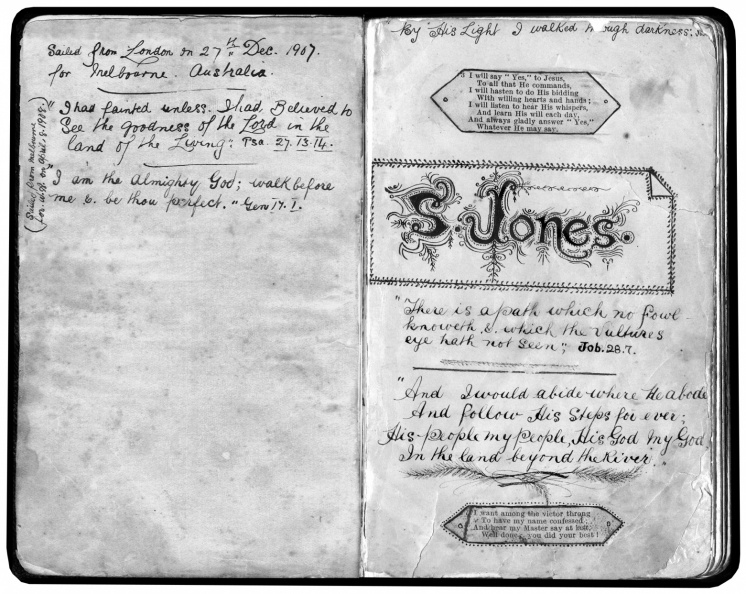 Sailed from London on 27th Dec. 1907.
for Melbourne. Australia.
"I had fainted unless. I had Believed to
See the goodness of the Lord in the
land of the Living": Psa. 27. 13.14.
"I am the Almighty God; walk before
me &. be thou perfect." Gen 17. 1.
(Sailed from Melbourne
on April. 8. 1908.)
"By His Light I walked through darkness":
I will say "Yes," to Jesus,
To all that He commands,
I will hasten to do His bidding
With willing hearts and hands;
I will listen to hear His whispers,
And learn His will each day,
And always gladly answer "Yes,"
Whatever He may say.
S. Jones.
"There is a path which no fowl
knoweth &. which the Vultures
eye hath not seen"; Job. 28.7.
"And I would abide where He abode
And follow His Steps for ever;
His-people my people, His God My God
In the land beyond the River".
I want among the victor throng
To have my name confessed
And hear my Master say at last,
Well done, you did your best!